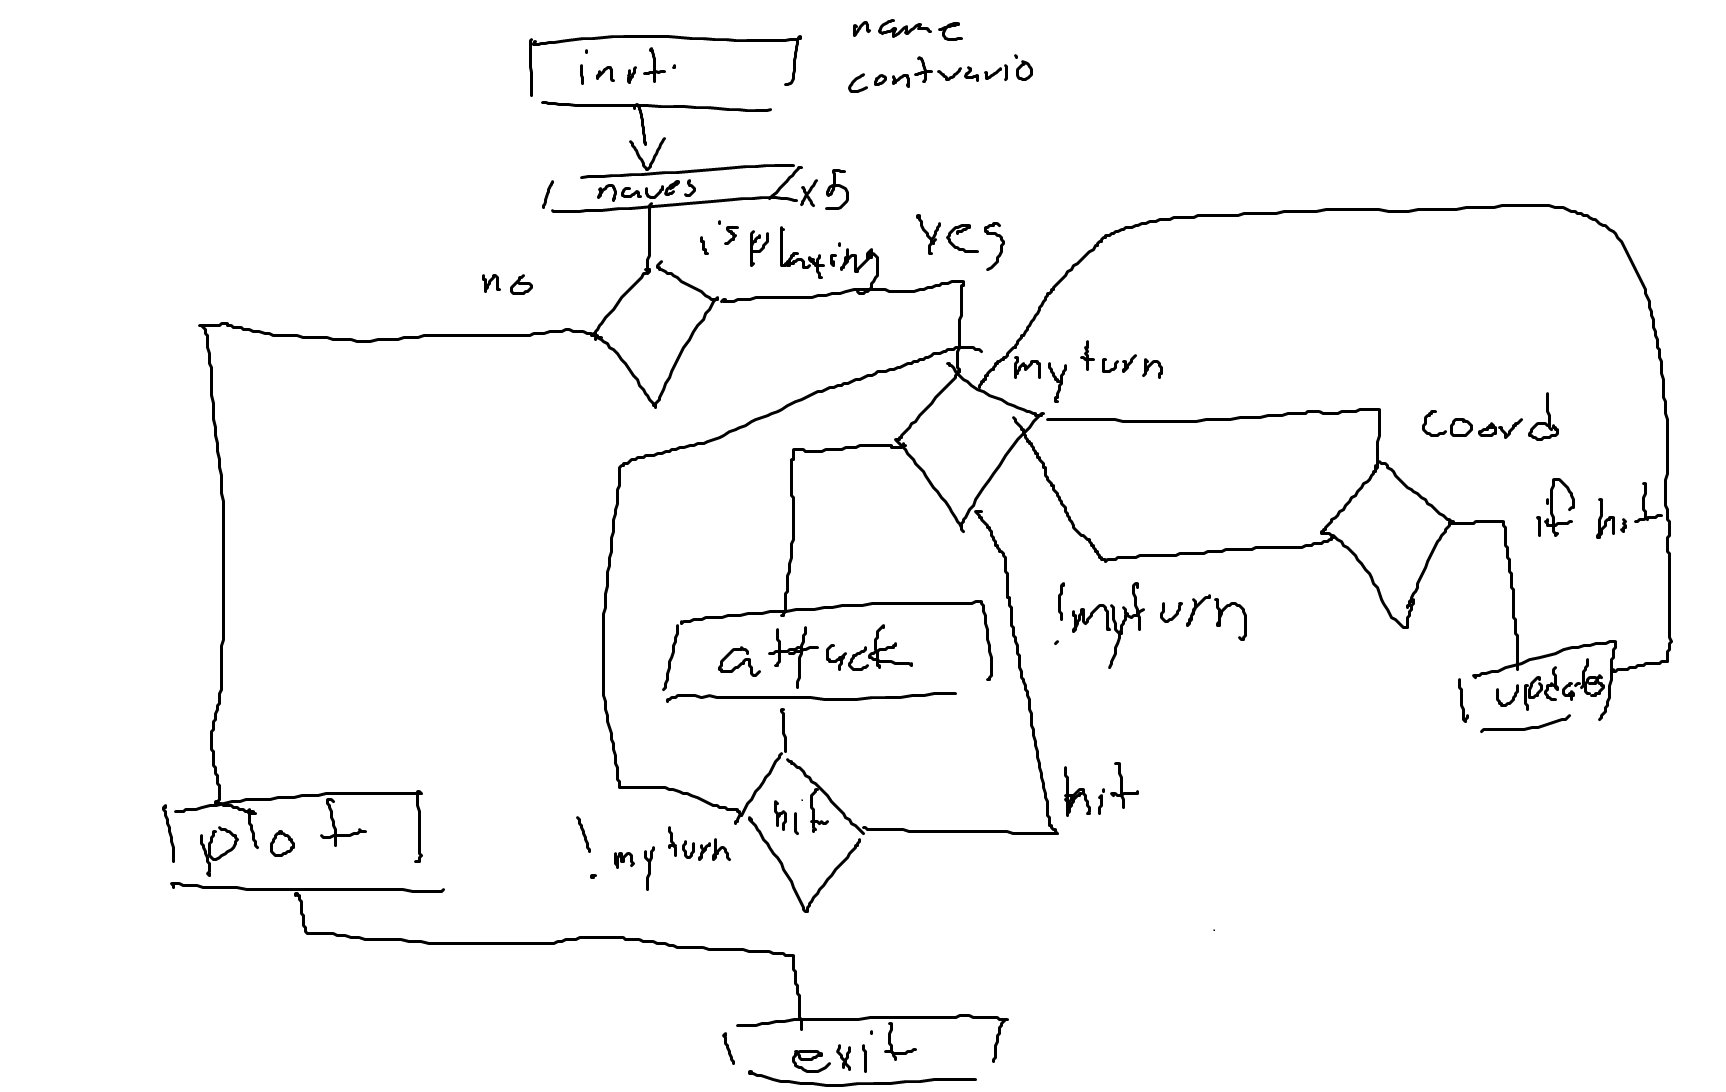 name
contrario
init.
naves
x5
is playing
yes
no
my turn
coord
if hit
!myturn
attack
update
hit
hit
! my turn
plot
exit